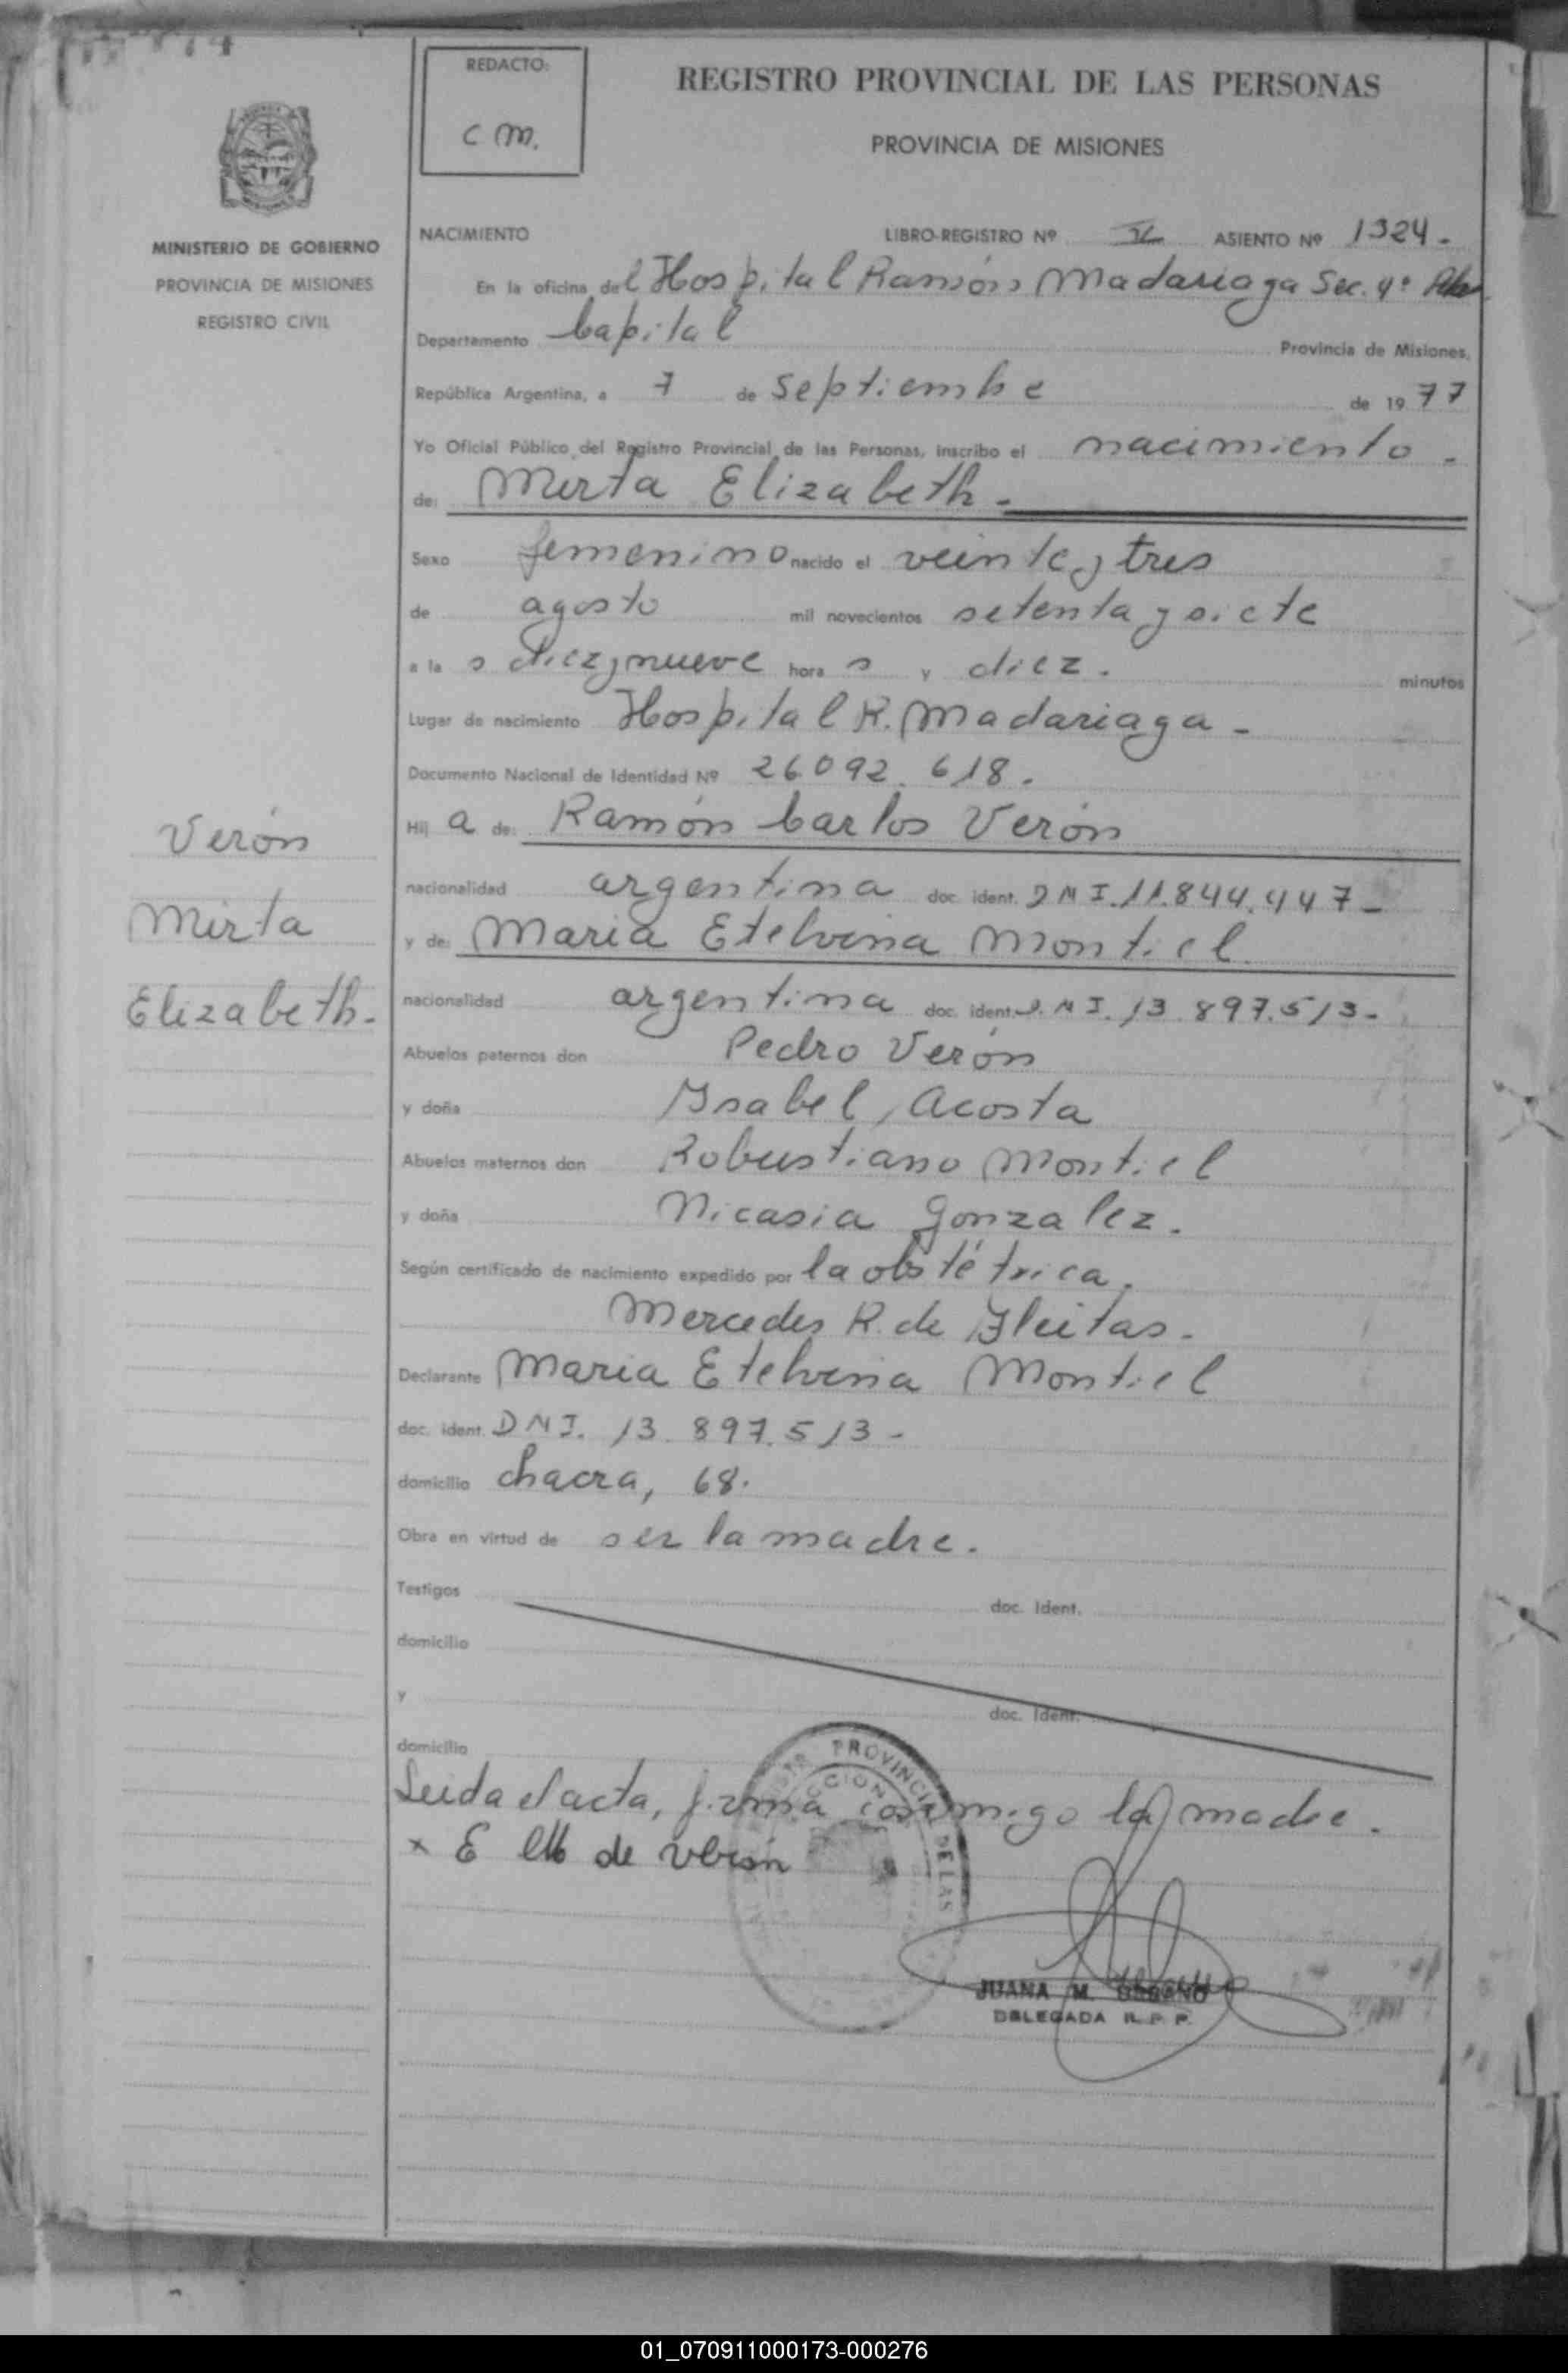 REDACTO:
C M.
REGISTRO PROVINCIAL DE LAS PERSONAS
PROVINCIA DE MISIONES
MINISTERIO DE GOBIERNO
PROVINCIA DE MISIONES
REGISTRO CIVIL
NACIMIENTO LIBRO-REGISTRO Nº ASIENTO Nº 1324.
En la oficina del Hospital Ramón Madariaga Sec. 4ª
Departamento Capital Provincia de Misiones,
República Argentina, a 7 de septiembre de 1977
Yo Oficial Público del Registro Provincial de las Personas, inscribo el nacimiento.
de: Mirta Elizabeth.
Sexo femenino nacido el veinte y tres
de agosto mil novecientos setenta y siete
a la s diez y nueve hora s y diez. minutos
Lugar de nacimiento Hospital R. Madariaga -
Documento Nacional de Identidad Nº 26.092.618.
Hij a de: Ramón Carlos Verón
nacionalidad argentina doc. ident. DNI. 11.844.447-
y de: Maria Etelvina Montiel
nacionalidad argentina doc. ident. D.N I. 13.897.513-
Abuelos paternos don Pedro Verón
y doña Ysabel, Acosta
Abuelos maternos don Robustiano Montiel
y doña Nicasia Gonzalez.
Según certificado de nacimiento expedido por la obstétrica.
Mercedes R. de Fleitas.
Declarante Maria Etelvina Montiel
doc. ident. DNI. 13.897.513-
domicilio chacra, 68.
Obra en virtud de ser la madre.
Testigos doc. Ident.
domicilio
y doc. Ident.
domicilio
Leida el acta, firma conmigo la madre.
x E de verón
PROVINCIAL DE LAS
JUANA M.
DELEGADA R. P. P.
Verón
Mirta
Elizabeth.
01_070911000173-000276